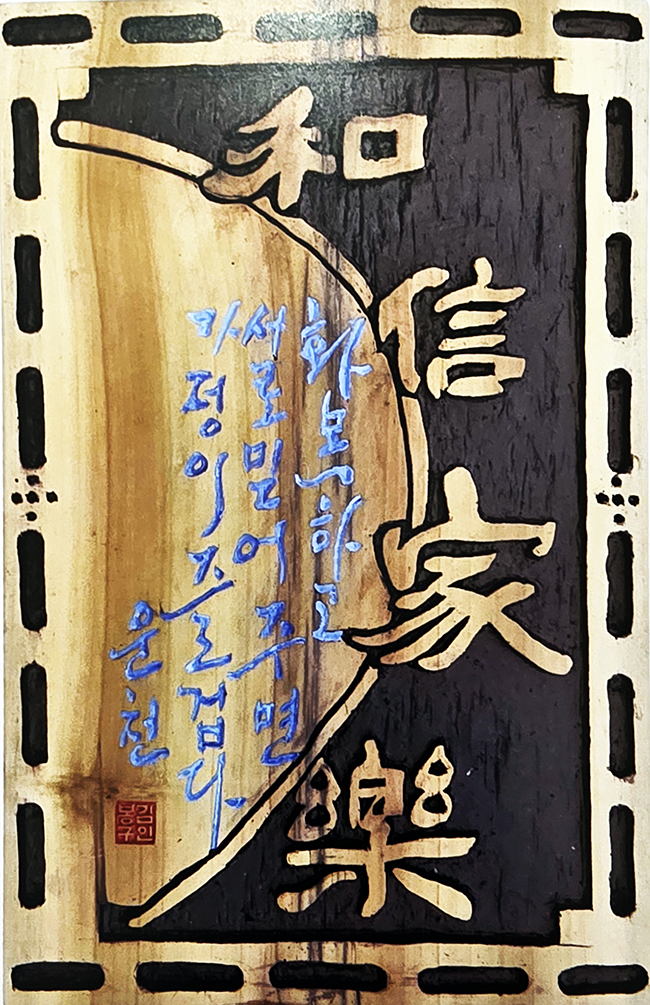 和信家樂
화목하고
서로밀어주면
가정이즐겁다.
운천
김인
봉구